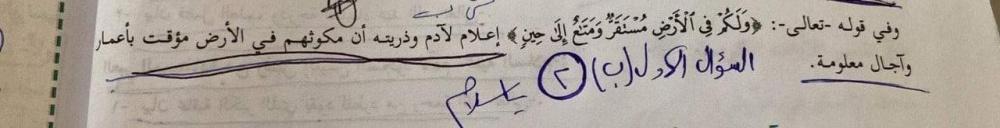 وفي قوله -تعالى-: ﴿وَلَكُمْ فِي ٱلْأَرْضِ مُسْتَقَرٌّ وَمَتَٰعٌ إِلَىٰ حِينٍ﴾ إعلام لآدم وذريته أن مكوثهم في الأرض مؤقت بأعمار
وآجال معلومة.
السؤال الاول (ب) ٢
يا سلام